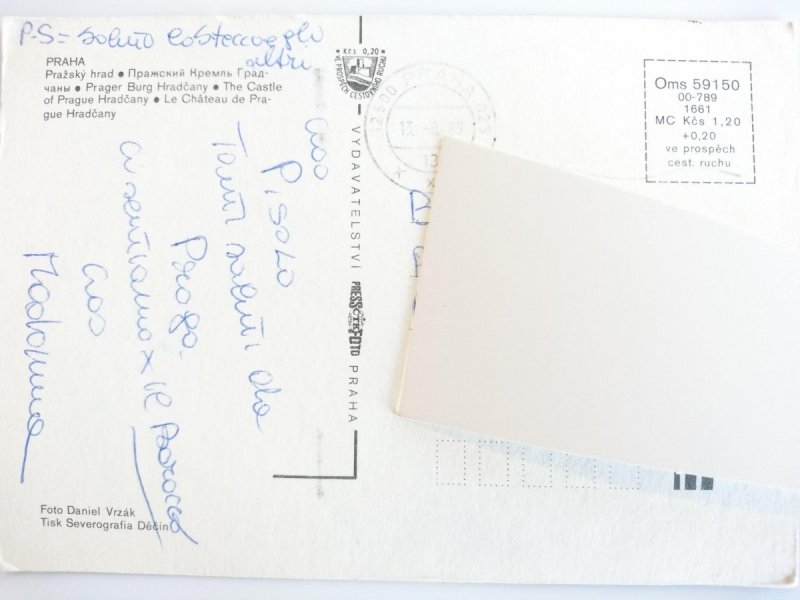 P.S= Saluto
altri.
PRAHA
Pražský hrad • Пражский Кремль Град-
чаны • Prager Burg Hradčany • The Castle
of Prague Hradčany • Le Château de Pra-
gue Hradčany
Kčs 0,20
VE PROSPĚCH CESTOVNÍHO RUCHU
Oms 59150
00-789
1661
MC Kčs 1,20
+0,20
ve prospěch
cest. ruchu
Ciao
Pisolo
Tanti saluti da
Praga.
ci sentiamo x il Barocco
ciao
Madonna
VYDAVATELSTVÍ PRESSFOTO PRAHA
ČTK
Foto Daniel Vrzák
Tisk Severografia Děčín